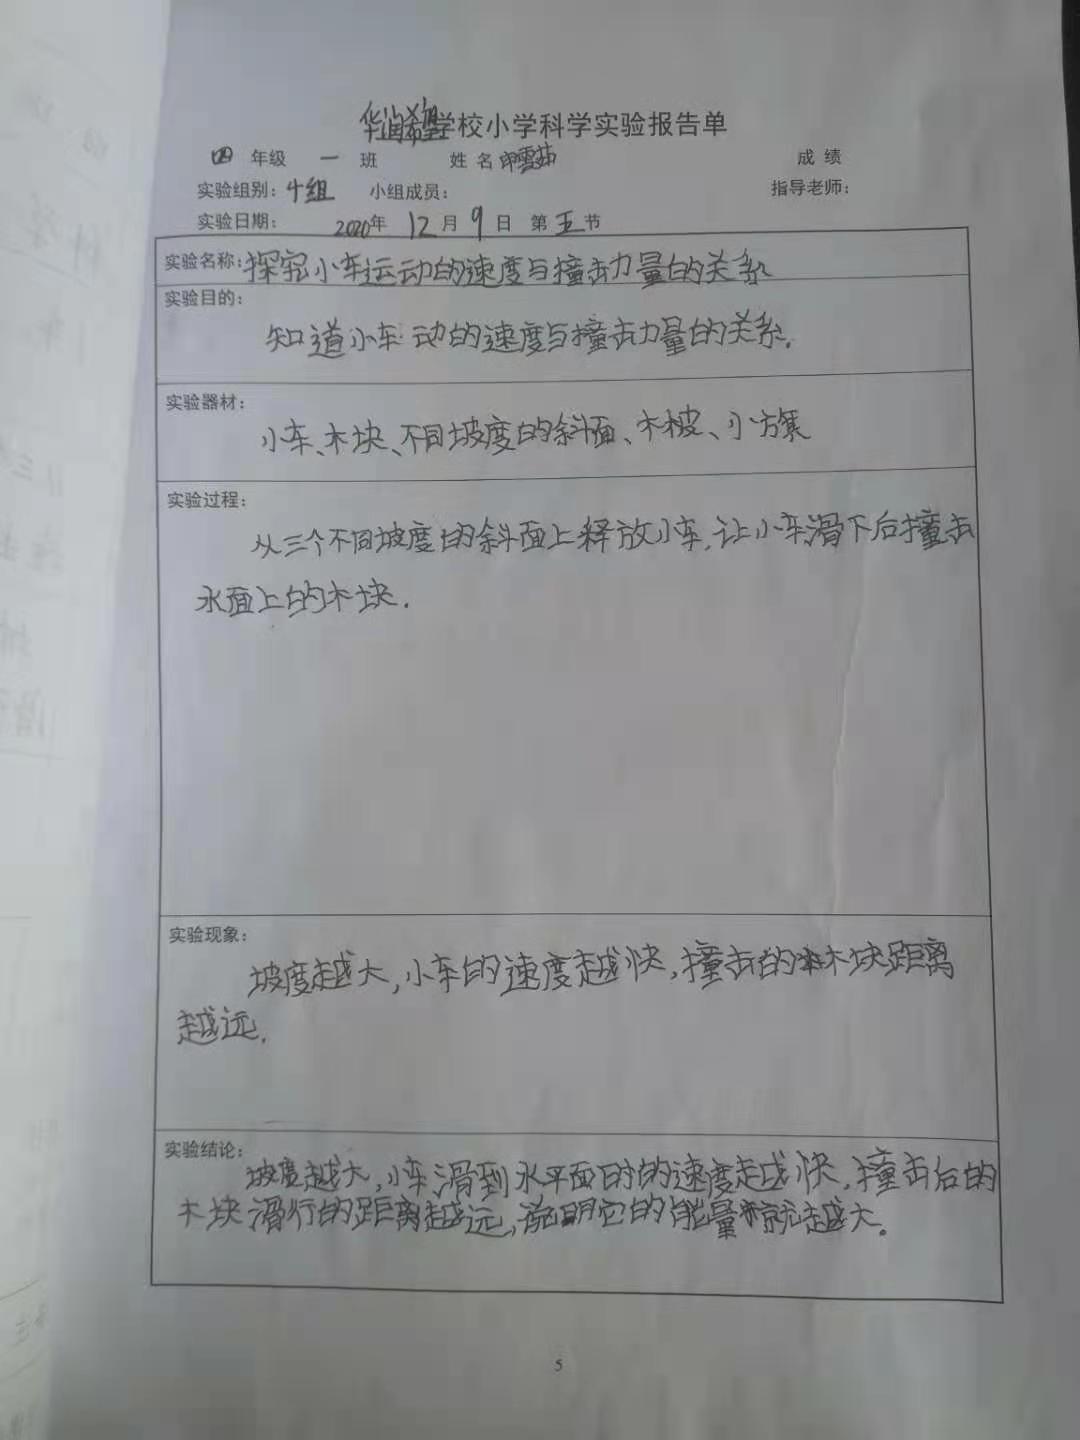 华润希望学校小学科学实验报告单
四 年级 一 班 姓名 申雪茹 成绩
实验组别：十组 小组成员： 指导老师：
实验日期： 2020年 12月 9日 第五节
实验名称：探究小车运动的速度与撞击力量的关系
实验目的：
知道小车动的速度与撞击力量的关系.
实验器材：
小车、木块、不同坡度的斜面、木板、小旗
实验过程：
从三个不同坡度的斜面上释放小车,让小车滑下后撞击
水面上的木块.
实验现象：
坡度越大,小车的速度越快,撞击的木块距离
越远.
实验结论：
坡度越大,小车滑到水平面时的速度越快,撞击后的
木块滑行的距离越远,说明它的能量就越大。
5